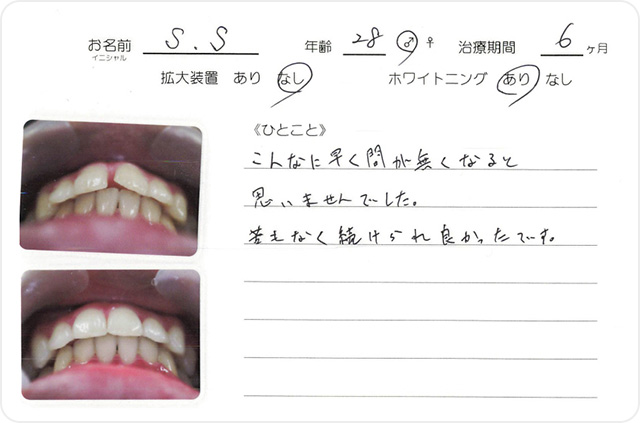 お名前 S.S 年齢 28 ♂ ♀ 治療期間 6 ヶ月
イニシャル
拡大装置 あり なし ホワイトニング あり なし
《ひとこと》
こんなに早く間が無くなると
思いませんでした。
苦もなく続けられ良かったです。